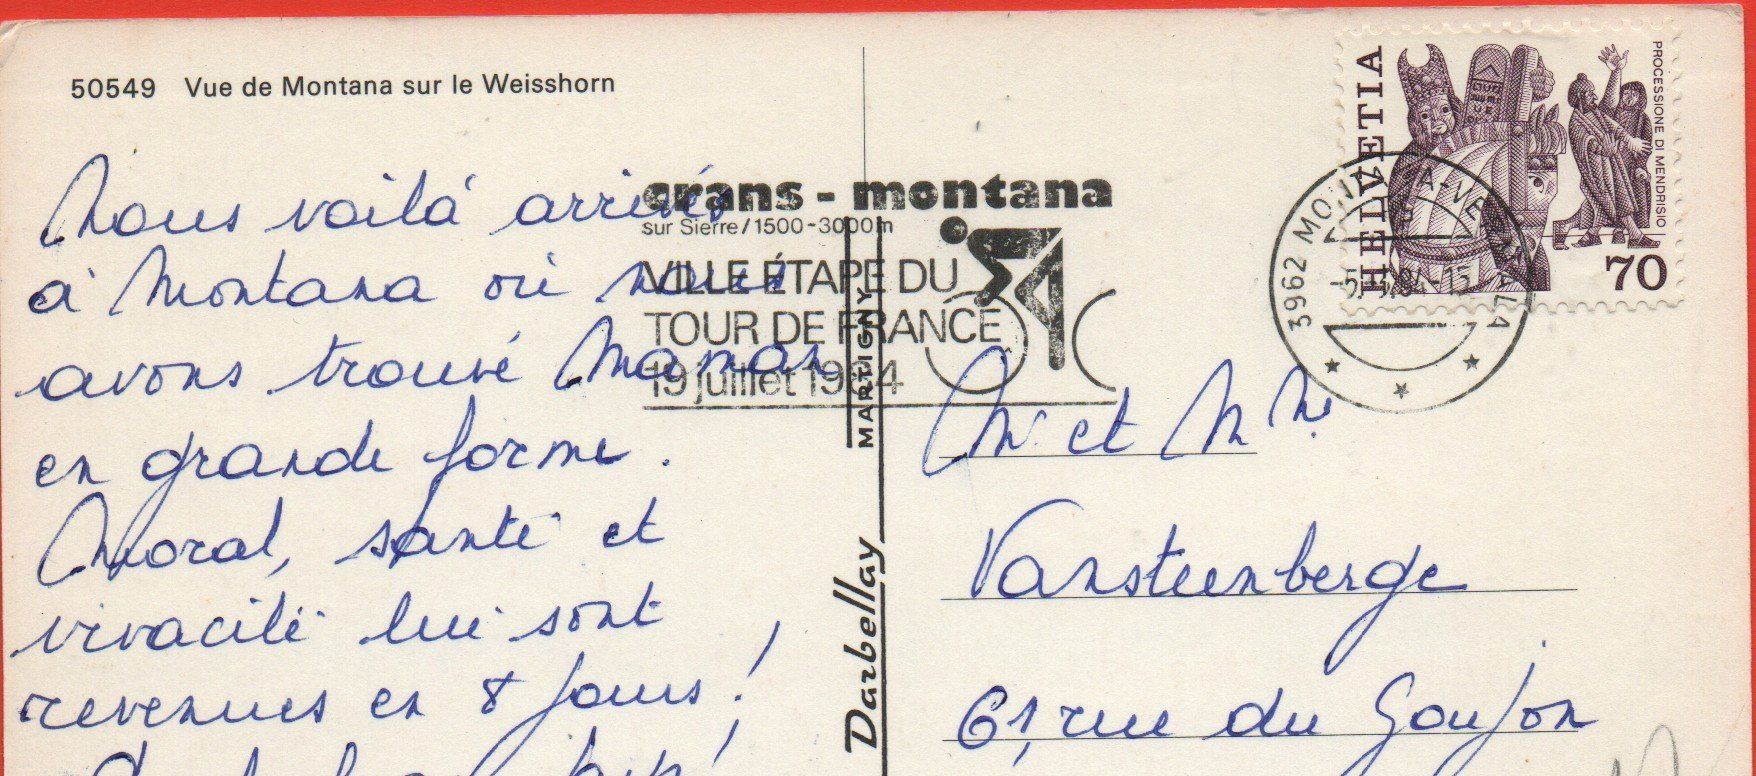 50549 Vue de Montana sur le Weisshorn
Nous voilà arrivés
à Montana où nous
avons trouvé Maman
en grande forme.
Moral, santé et
vivacité lui sont
revenues en 8 jours !
crans - montana
sur Sierre/1500-3000m
VILLE ÉTAPE DU
TOUR DE FRANCE
19 juillet 1984
MARTIGNY
Darbellay
HELVETIA
PROCESSIONE DI MENDRISIO
70
3962 MONTANA-VERMALA
Mr et Mme
Vansteenberge
61, rue du Goujon